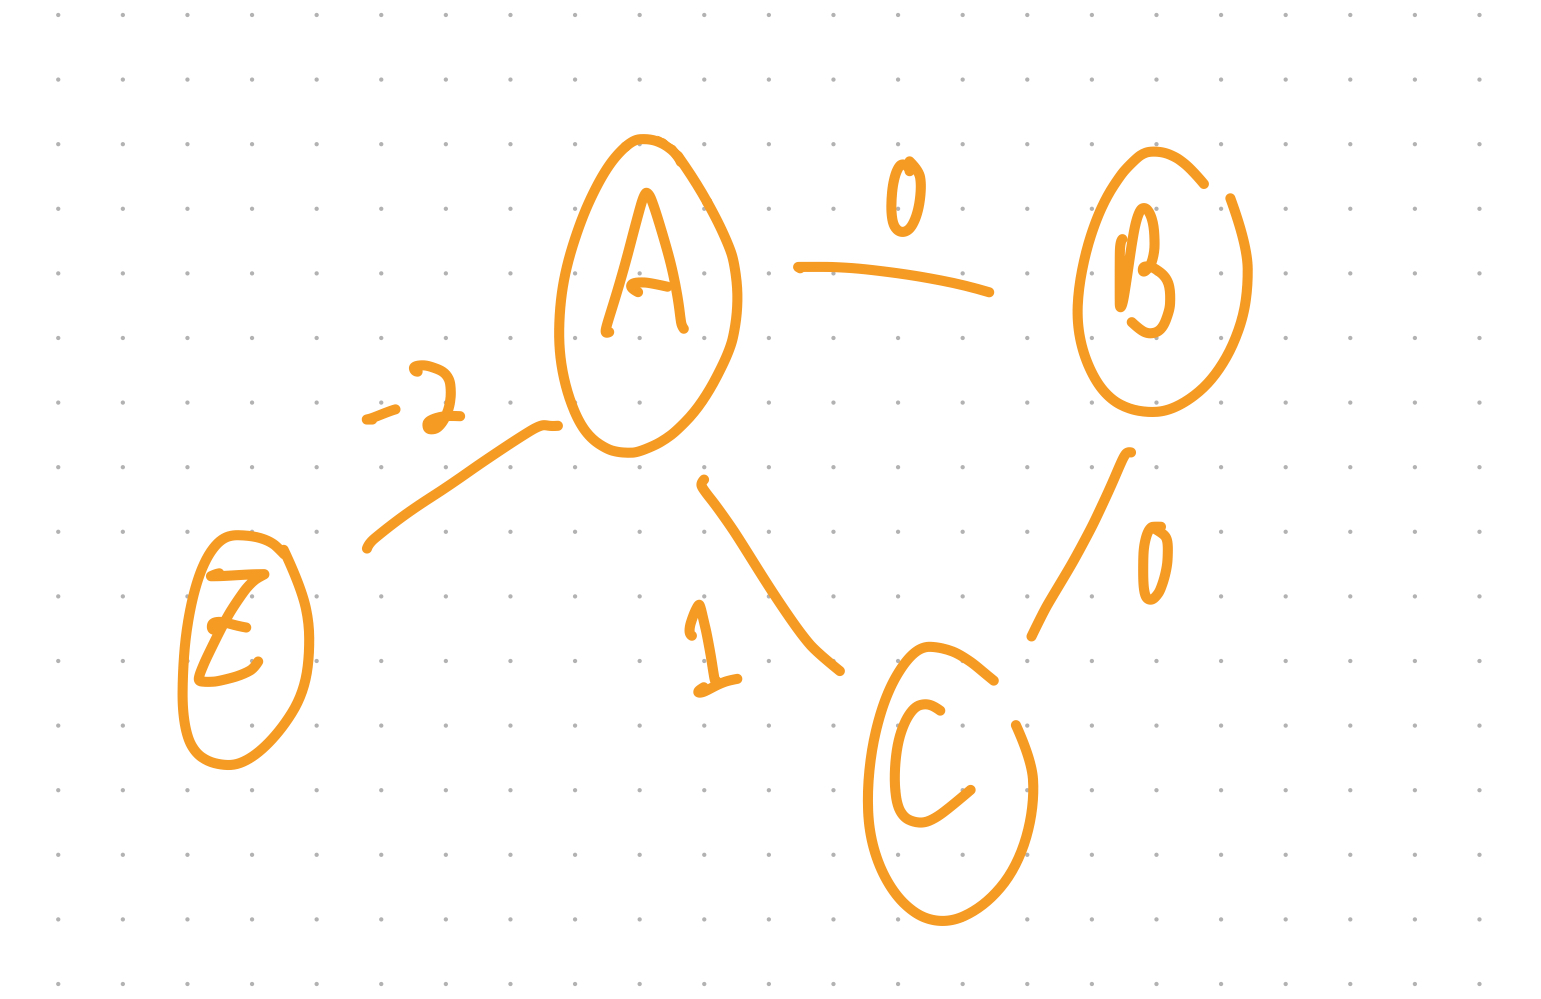 A
0
B
-2
Z
1
0
C